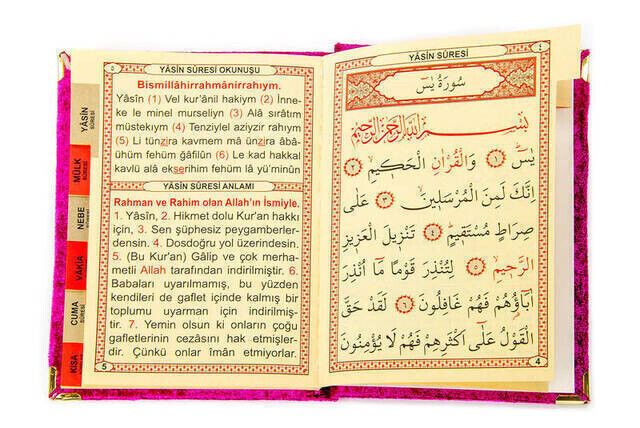 YÂSİN
SÛRESİ
MÜLK
SÛRESİ
NEBE
SÛRESİ
VAKIA
SÛRESİ
CUMA
SÛRESİ
KISA
٥
YÂSİN SÛRESİ OKUNUŞU
Bismillâhirrahmânirrahıym.
Yâsîn (1) Vel kur'ânil hakiym (2) İnne-
ke le minel murseliyn (3) Alâ sırâtım
müstekıym (4) Tenziylel aziyzir rahıym
(5) Li tünzira kavmem mâ ünzira âbâ-
ühüm fehüm gâfilûn (6) Le kad hakkal
kavlü alâ ekserihim fehüm lâ yü'minûn
YÂSİN SÛRESİ ANLAMI
Rahman ve Rahim olan Allah'ın İsmiyle.
1. Yâsîn, 2. Hikmet dolu Kur'an hakkı
için, 3. Sen şüphesiz peygamberler-
densin. 4. Dosdoğru yol üzerindesin.
5. (Bu Kur'an) Gâlip ve çok merha-
metli Allah tarafından indirilmiştir. 6.
Babaları uyarılmamış, bu yüzden
kendileri de gaflet içinde kalmış bir
toplumu uyarman için indirilmiş-
tir. 7. Yemin olsun ki onların çoğu
gafletlerinin cezasını hak etmişler-
dir. Çünkü onlar îmân etmiyorlar.
5
YÂSİN SÛRESİ
٤
سُورَةُ يٰسٓ
بِسْمِ اللّٰهِ الرَّحْمٰنِ الرَّحِيمِ
يٰسٓ ﴿١﴾ وَالْقُرْاٰنِ الْحَكِيمِ ﴿٢﴾
اِنَّكَ لَمِنَ الْمُرْسَلِينَ ﴿٣﴾ عَلٰى
صِرَاطٍ مُسْتَقِيمٍ ﴿٤﴾ تَنْزِيلَ الْعَزِيزِ
الرَّحِيمِ ﴿٥﴾ لِتُنْذِرَ قَوْمًا مَٓا اُنْذِرَ
اٰبَٓاؤُهُمْ فَهُمْ غَافِلُونَ ﴿٦﴾ لَقَدْ حَقَّ
الْقَوْلُ عَلٰٓى اَكْثَرِهِمْ فَهُمْ لَا يُؤْمِنُونَ
4